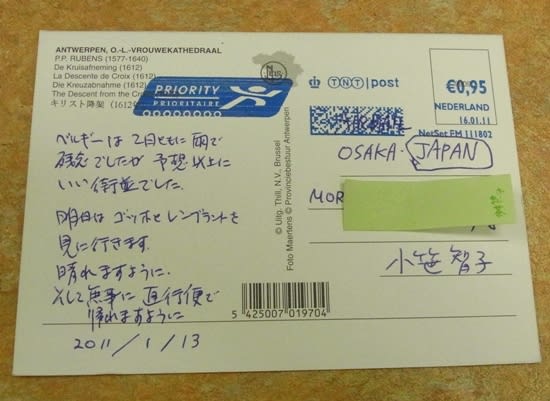 ANTWERPEN, O.-L.-VROUWEKATHEDRAAL
P.P. RUBENS (1577-1640)
De Kruisafneming (1612)
La Descente de Croix (1612)
Die Kreuzabnahme (1612)
The Descent from the
キリスト降架 (1612
PRIORITY
PRIORITAIRE
ベルギーは2日ともに雨で
残念でしたが予想以上に
いい街並でした。
明日はゴッホとレンブラントを
見に行きます。
晴れますように。
そして無事に直行便で
帰れますように
2011/1/13
© Uitg. Thill, N.V., Brussel
Foto Maertens © Provinciebestuur Antwerpen
5 425007 019704
TNT post
€0,95
NEDERLAND
16.01.11
NetSet FM 111802
OSAKA. JAPAN
MOR
小笹 智子